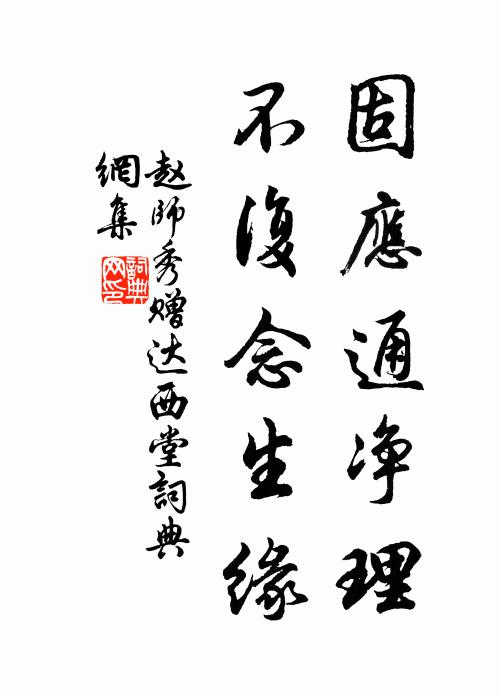 固應通净理
不復念生緣
赵師秀赠达西堂詞典
網集
詞典
网印